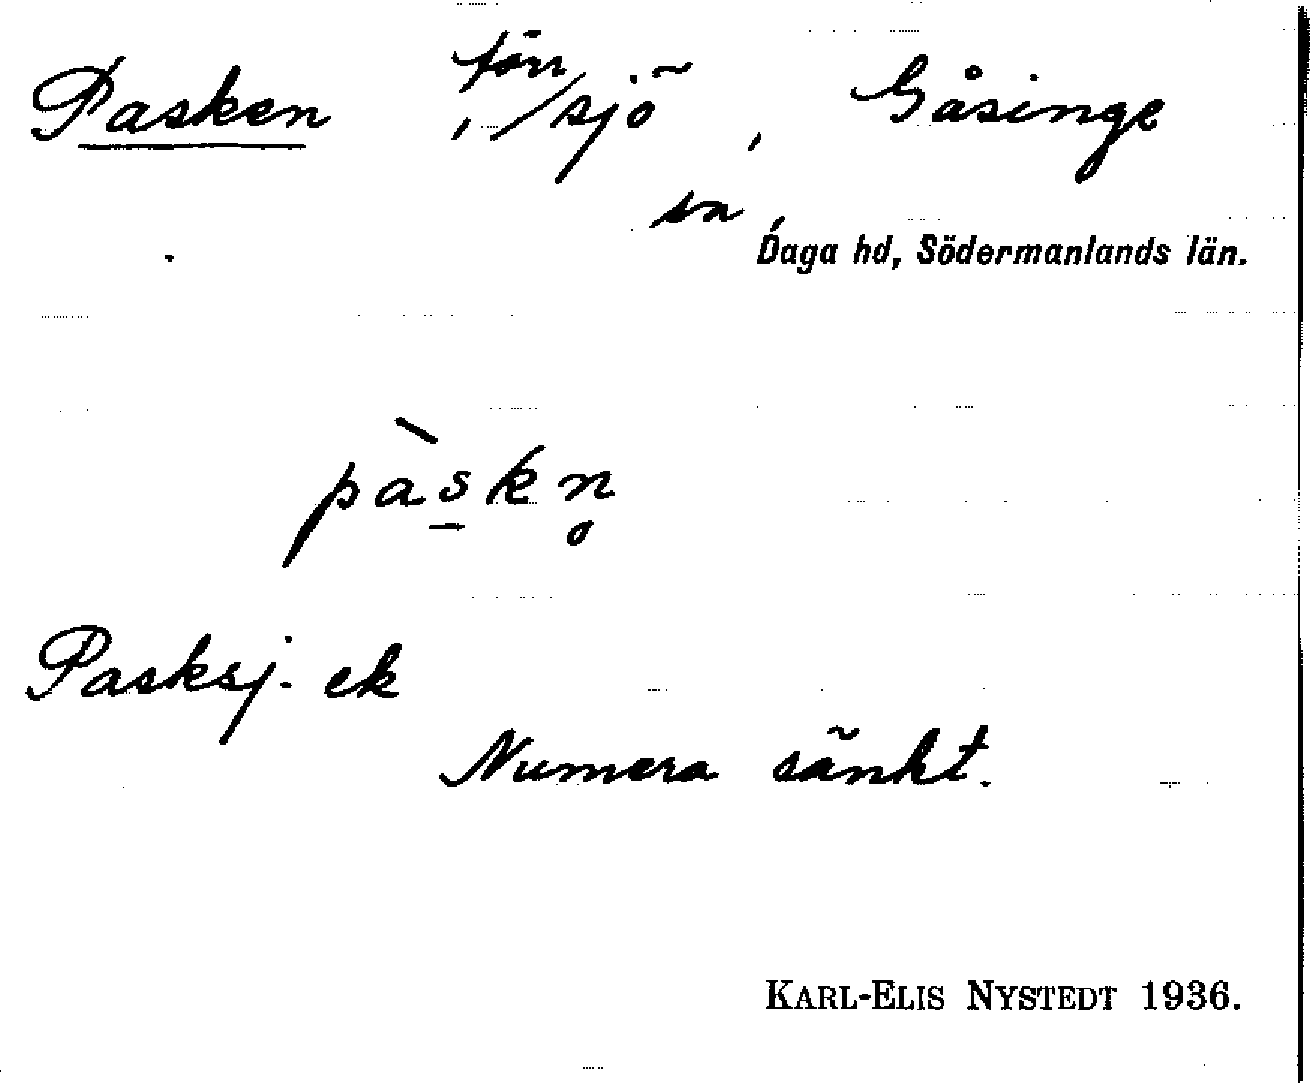 Pasken, förr sjö, Gåsinge
sn,
Daga hd, Södermanlands län.
pàs̲kn̥
Pasksj. ek
Numera sänkt.
KARL-ELIS NYSTEDT 1936.